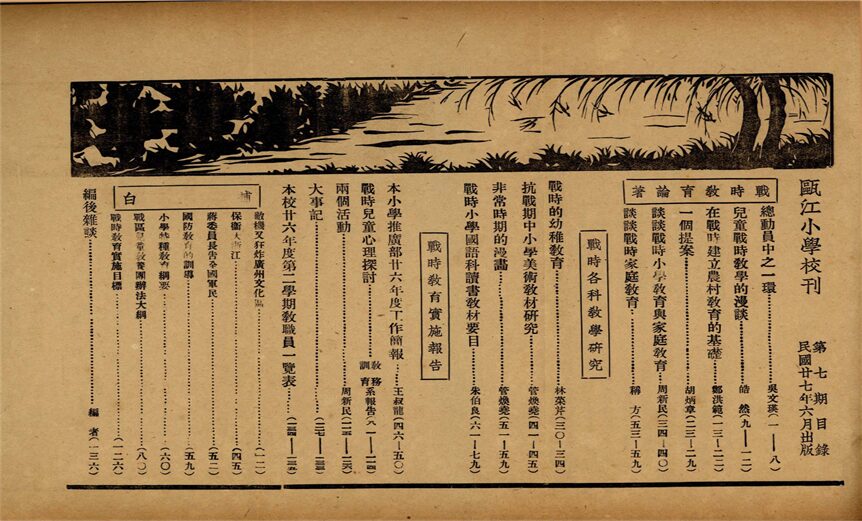 甌江小學校刊
第七期目錄
民國廿七年六月出版
戰時教育論著
總動員中之一環……吳文瑛(一—八)
兒童戰時教學的漫談……皓然(九—一二)
在戰時建立農村教育的基礎……鄭洪範(一三—二二)
一個提案……胡炳章(二三—二九)
談談戰時小學教育與家庭教育……周新民(三四—四〇)
談談戰時家庭教育……稱方(五三—五九)
戰時各科教學研究
戰時的幼稚教育……林棻芹(三〇—三四)
抗戰期中小學美術教材研究……管煥堯(四一—四五)
非常時期的漫畫……管煥堯(五一—五九)
戰時小學國語科讀書教材要目……朱伯良(六一—七九)
戰時教育實施報告
本小學推廣部廿六年度工作簡報……王叔龍(四六—五〇)
戰時兒童心理探討……教務訓育系報告
兩個活動……周新民
大事記
本校廿六年度第二學期教職員一覽表
補白
敵機又狂炸廣州文化區……(一二)
保衛大浙江……(四五)
蔣委員長告全國軍民……(五二)
國防教育的訓導……(五九)
小學特種教育綱要……(六〇)
戰區兒童教養團辦法大綱……(八〇)
戰時教育實施目標……(一二六)
編後雜談……編者(一三六)